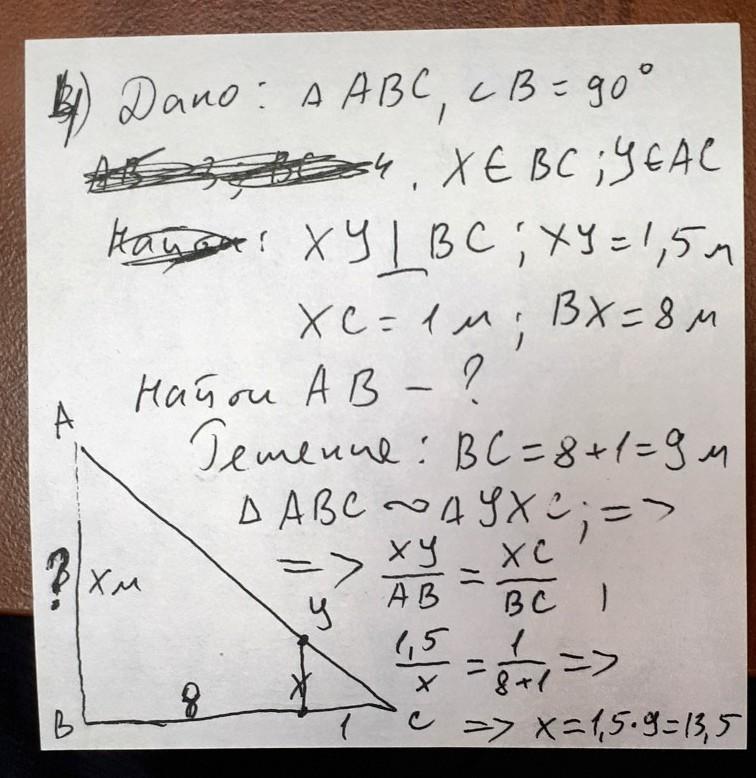 В) Дано: △ ABC, ∠B = 90°
X ∈ BC ; Y ∈ AC
XY ⊥ BC ; XY = 1,5 м
XC = 1 м ; BX = 8 м
Найти AB – ?
Решение: BC = 8 + 1 = 9 м
△ ABC ∼ △ YXC ; =>
=> XY/AB = XC/BC ,
1,5/x = 1/(8+1) =>
=> x = 1,5 · 9 = 13,5
A
?
x м
Y
X
B
8
1
C